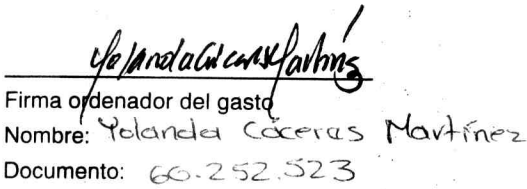 Yolanda Cáceres Martínez
Firma ordenador del gasto
Nombre: Yolanda Cáceres Martínez
Documento: 60.252.523